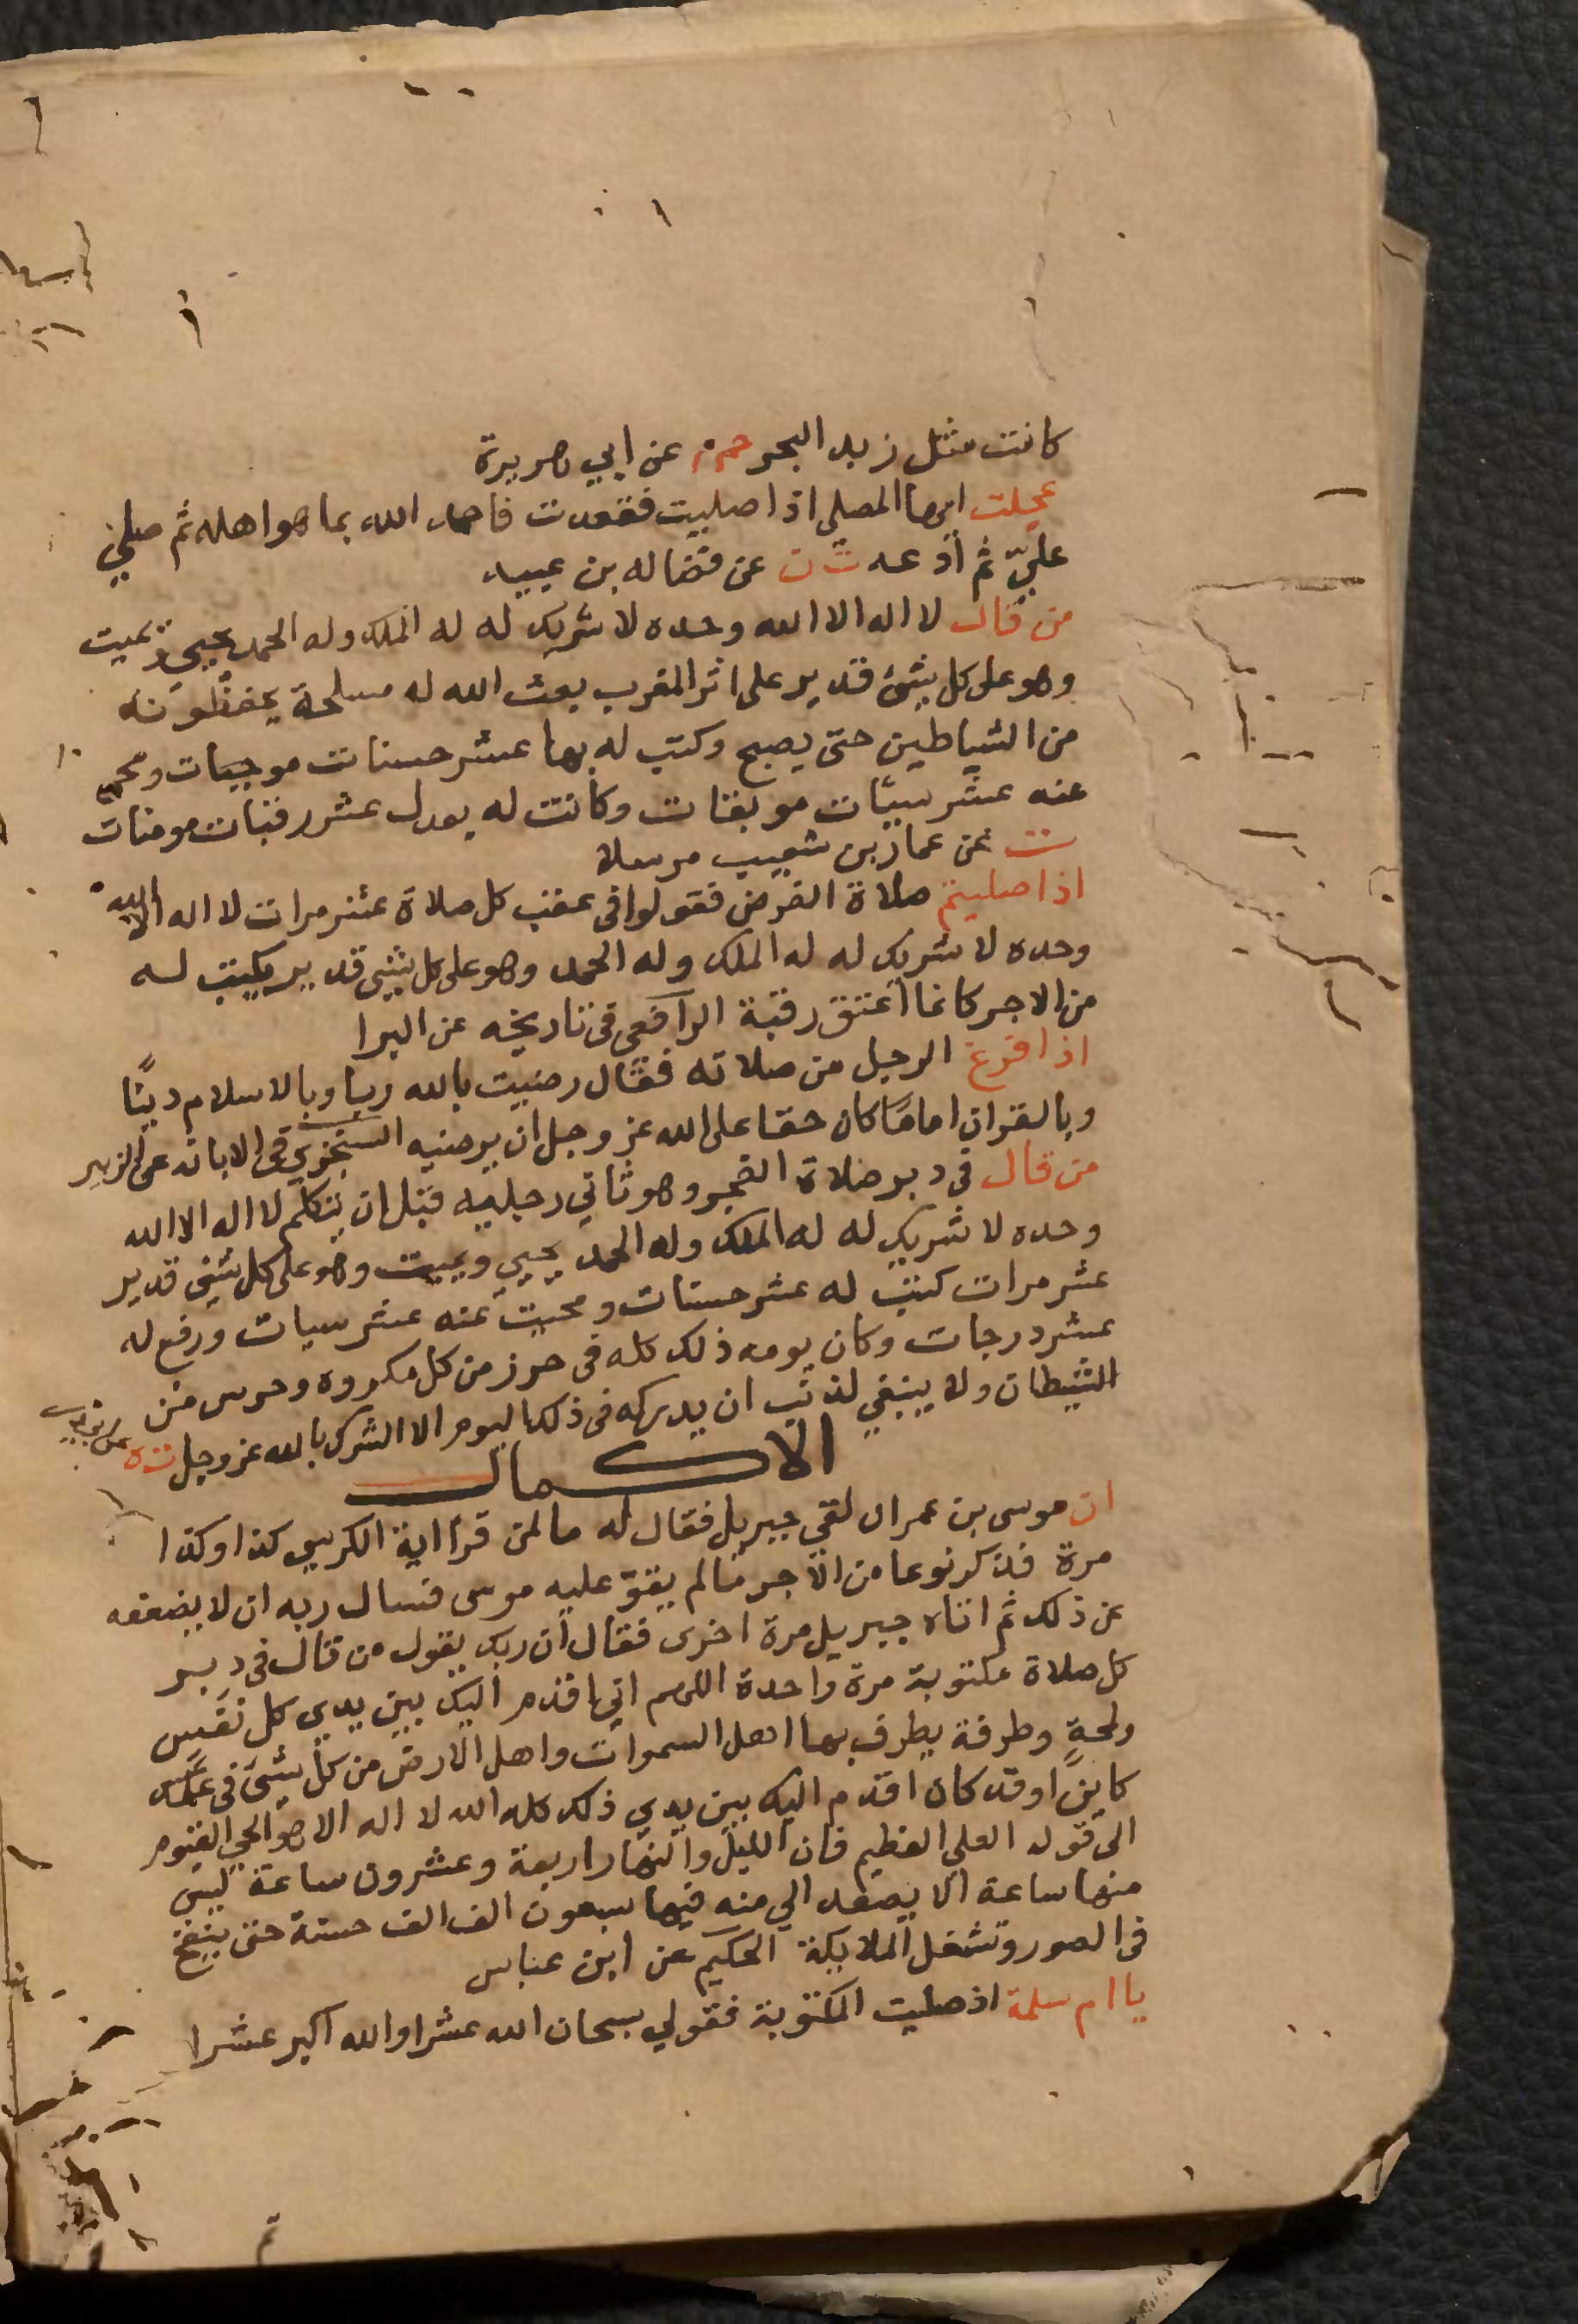 كانت مثل زبد البحر حم م عن ابي هريرة
عجلت ايها المصلي اذا صليت فقعدت فاحمد الله بما هو اهله ثم صلي
عليّ ثم أدعه ت ن عن فضاله بن عبيد
من قال لا اله الا الله وحده لا شريك له له الملك وله الحمد يحيي ويميت
وهو على كل شئ قدير على اثر المغرب بعث الله له مسلحة يحفظونه
من الشياطين حتى يصبح وكتب له بها عشر حسنات موجبات ومحى
عنه عشر سيّات موبقات وكانت له بعدل عشر رقبات مومنات
ت عن عمار بن شبيب مرسلا
اذا صليتم صلاة الفرض فقولوا في عقب كل صلاة عشر مرات لا اله الا الله
وحده لا شريك له له الملك وله الحمد وهو على كل شئ قدير يكتب له
من الاجر كانما أعتق رقبة الرافعي في تاريخه عن البرا
اذا فرغ الرجل من صلاته فقال رضيت بالله ربا وبالاسلام دينًا
وبالقران امامًا كان حقا على الله عز وجل ان يرضيه السجزي في الابانه عن الزبير
من قال في دبر صلاة الفجر وهو ثاني رجليه قبل ان يتكلم لا اله الا الله
وحده لا شريك له له الملك وله الحمد يحيي ويميت وهو على كل شئ قدير
عشر مرات كتب له عشر حسنات ومحيت عنه عشر سيات ورفع له
عشر درجات وكان يومه ذلك كله في حرز من كل مكروه وحرس من
الشيطان ولا ينبغي لذنب ان يدركه في ذلك اليوم الا الشرك بالله عز وجل ت ه
الاكمال
ان موسى بن عمران لقي جبريل فقال له ما لمن قرأ اية الكرسي كذا وكذا
مرة فذكر نوعا من الأجر ما لم يقو عليه موسى فسال ربه ان لا يضعفه
عن ذلك ثم اتاه جبريل مرة اخرى فقال ان ربك يقول من قال في دبر
كل صلاة مكتوبة مرة واحدة اللهم اني اقدم اليك بين يدي كل نفس
ولمحةٍ وطرفة يطرف بها اهل السموات واهل الارض من كل شئ في علمك
كاينًا او قد كان اقدم اليك بين يدي ذلك كله الله لا اله الا هو الحي القيوم
الى قوله العلي العظيم فان الليل والنهار اربعة وعشرون ساعة ليس
منها ساعة الا يصعد الي منه فيها سبعون الف الف حسنة حتى ينفخ
في الصور وتشغل الملايكة الحكيم عن ابن عباس
يا ام سلمة اذ صليت المكتوبة فقولي سبحان الله عشرا والله اكبر عشرا